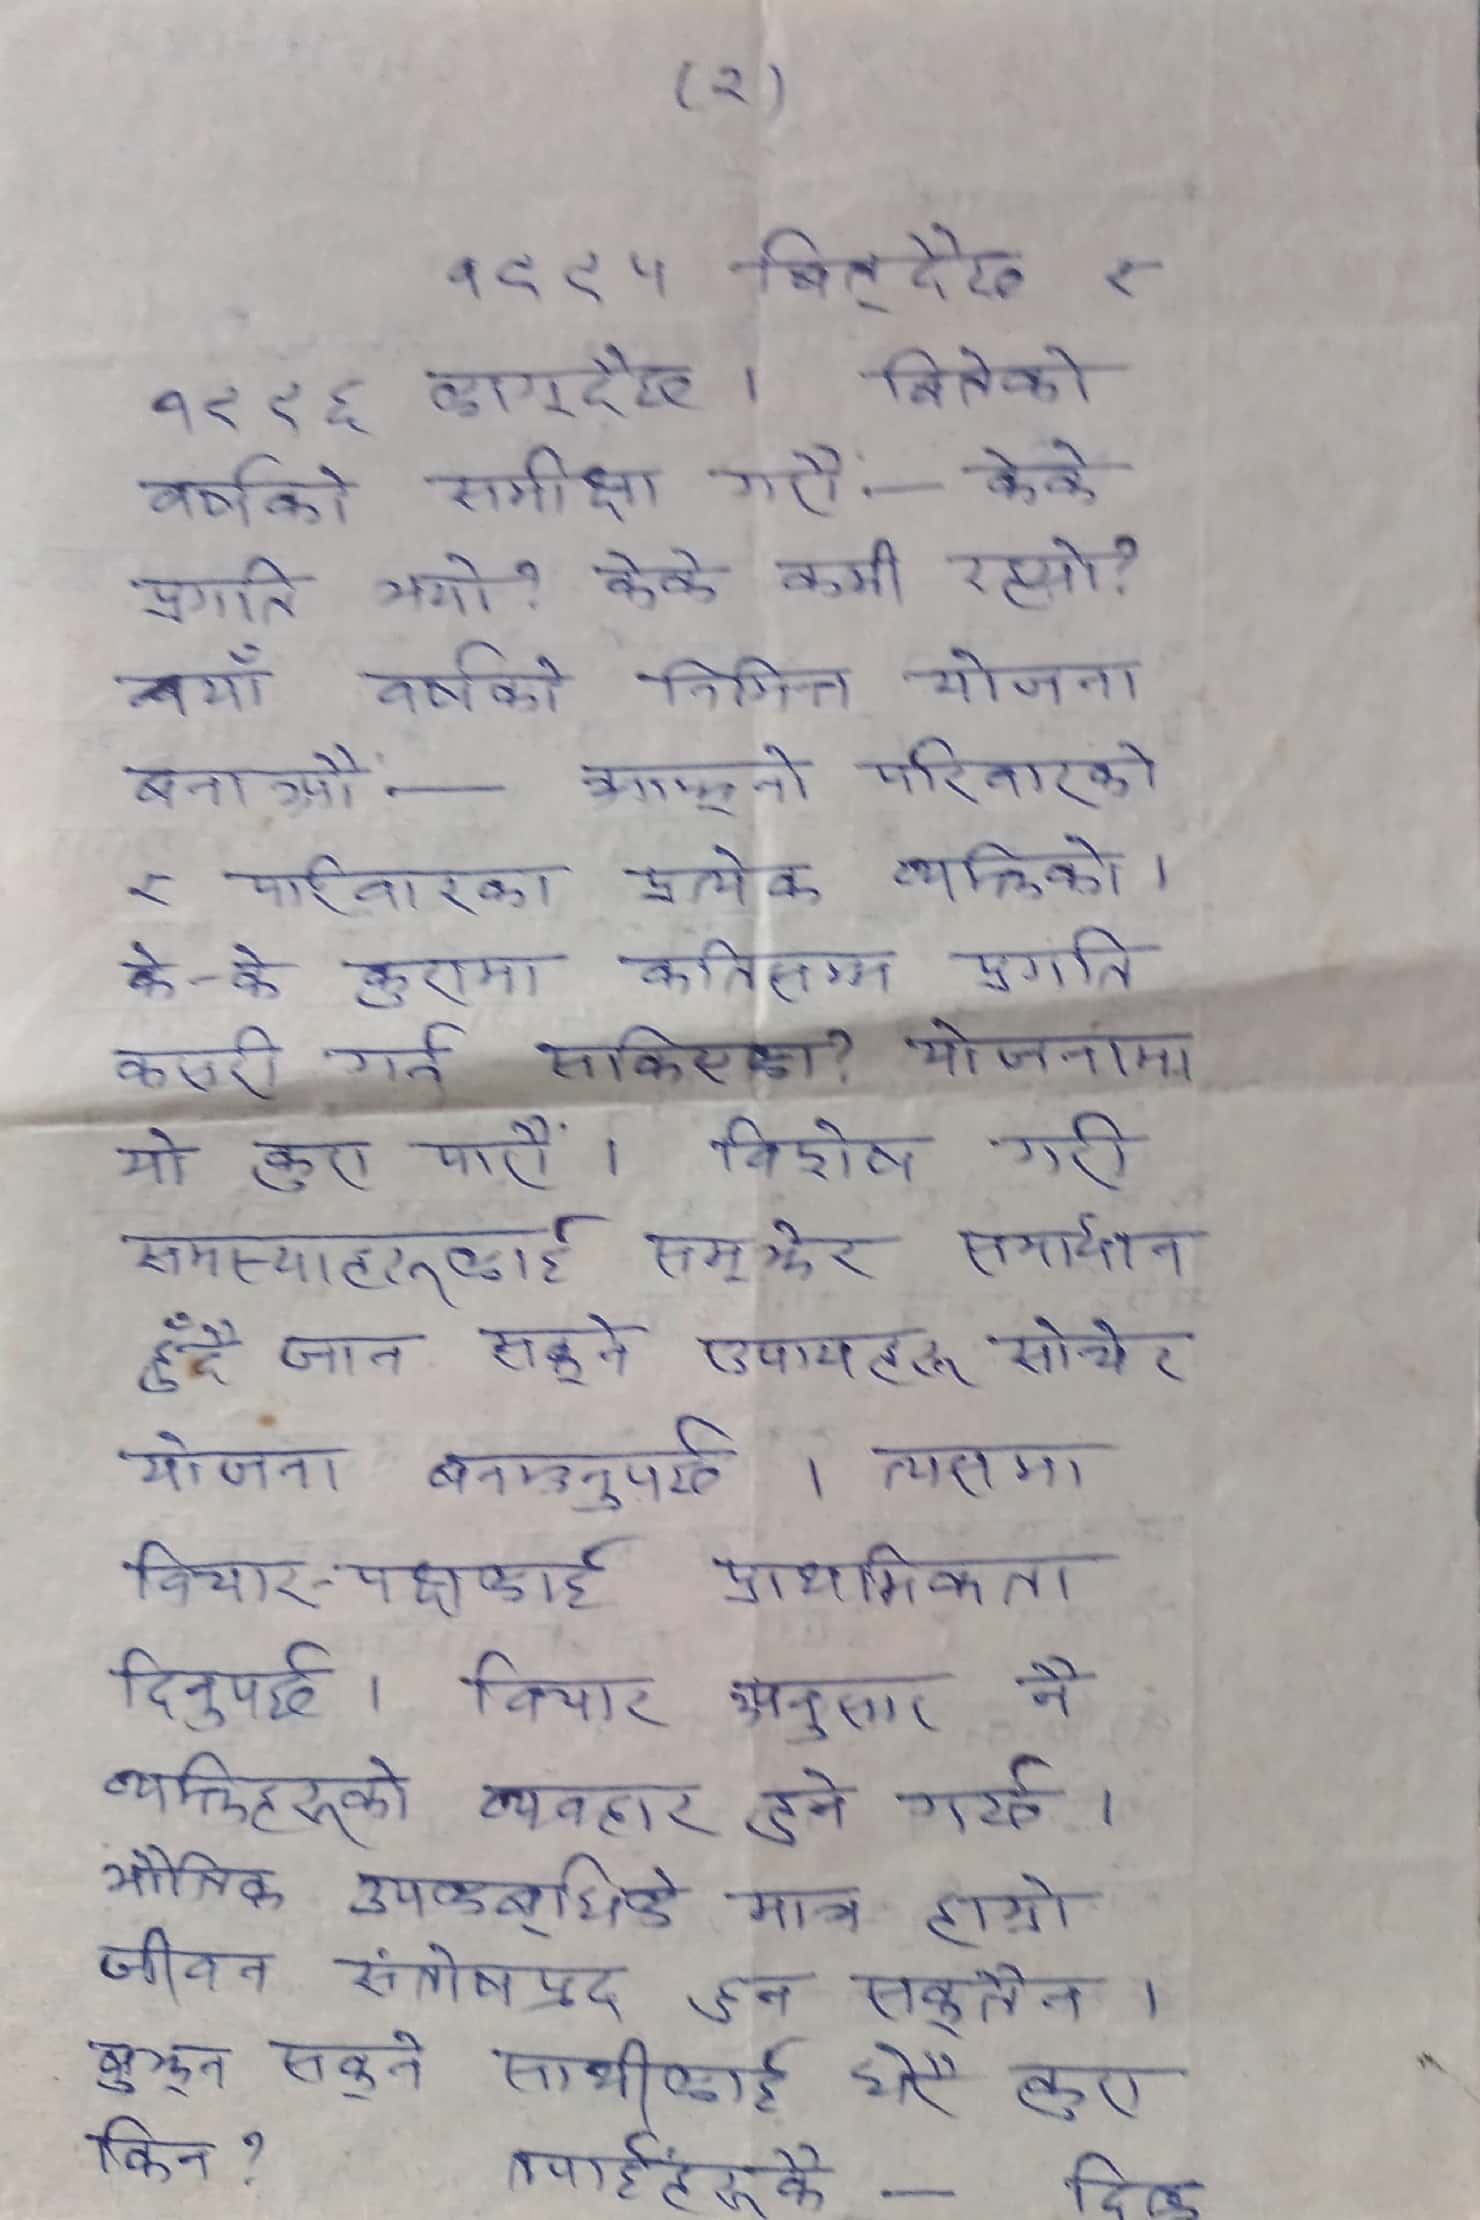 (२)
१९९५ बित्दैछ र
१९९६ लाग्दैछ । बितेको
वर्षको समीक्षा गरौं:— केके
प्रगति भयो? केके कमी रह्यो?
नयाँ वर्षको निमित्त योजना
बनाऔं:— आफ्नो परिवारको
र परिवारका प्रत्येक व्यक्तिको ।
के-के कुरामा कतिसम्म प्रगति
कसरी गर्न सकिएला? योजनामा
यो कुरा पारौं । विशेष गरी
समस्याहरूलाई सम्झेर समाधान
हुँदै जान सक्ने उपायहरू सोचेर
योजना बनाउनुपर्छ । त्यसमा
विचार-पक्षलाई प्राथमिकता
दिनुपर्छ । विचार अनुसार नै
व्यक्तिहरूको व्यवहार हुने गर्छ ।
भौतिक उपलब्धिले मात्र हाम्रो
जीवन संतोषप्रद हुन सक्तैन ।
बुझ्न सक्ने साथीलाई धेरै कुरा
किन? तपाईंहरूकै — दिल